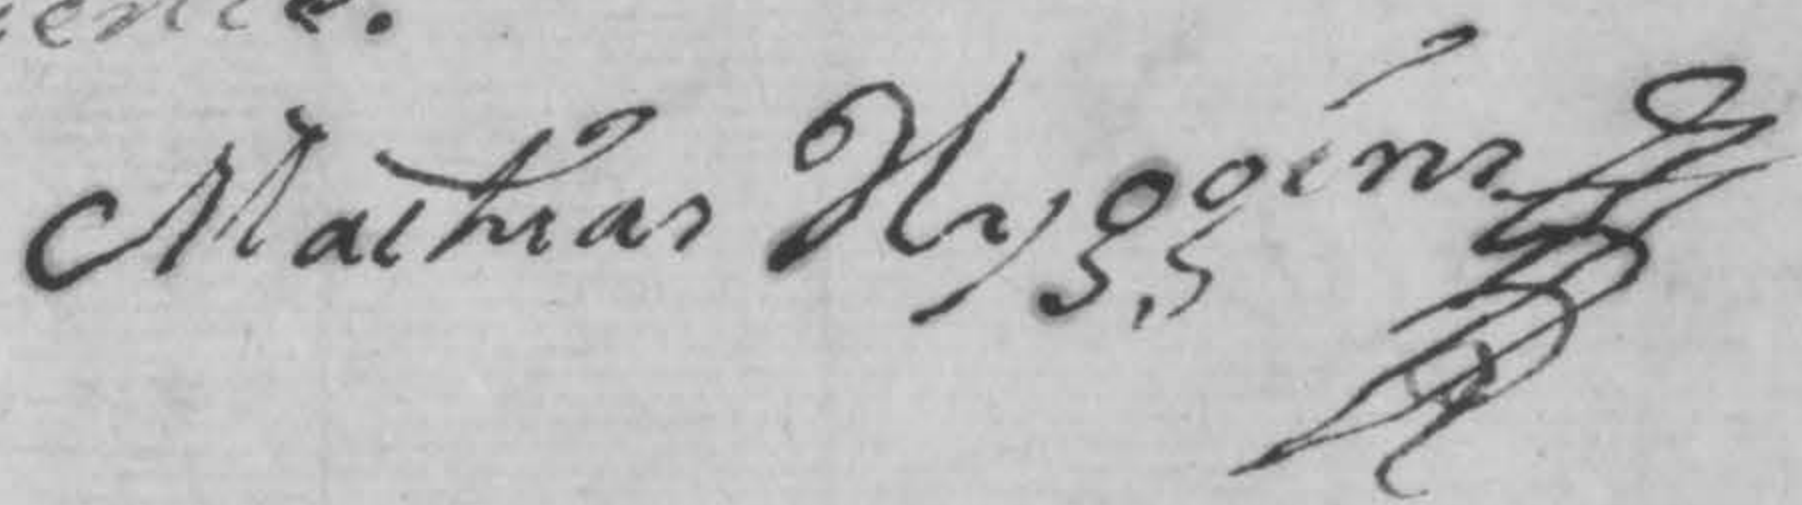 Mathias Hyggins